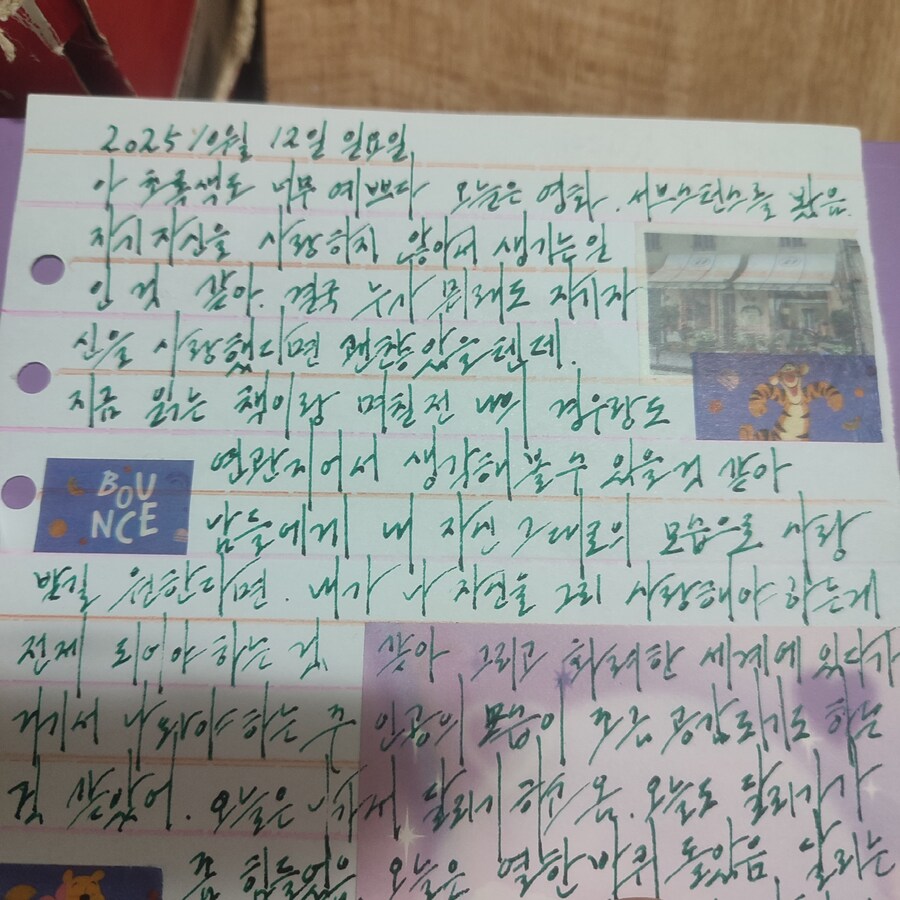 2025년 10월 12일 일요일
아 초록색도 너무 예쁘다 오늘은 영화. 서브스턴스를 봤음.
자기자신을 사랑하지 않아서 생기는 일
인 것 같아. 결국 누가 뭐래도 자기자
신을 사랑했다면 괜찮았을텐데.
지금 읽는 책이랑 며칠전 내의 경우랑도
연관지어서 생각해볼수 있을것 같아
BOU
NCE
남들에게 내 자신 그대로의 모습으로 사랑
받길 원한다면. 내가 나 자신을 그리 사랑해야 하는게
전제 되어야 하는 것 같아 그리고 화려한 세계에 있다가
거기서 나와야 하는 주인공의 모습이 조금 공감되기도 하는
것 같았어. 오늘은 달리기 하고 옴. 오늘도 달리기가
좀 힘들었음. 오늘은 열한바퀴 돌았음. 달리는